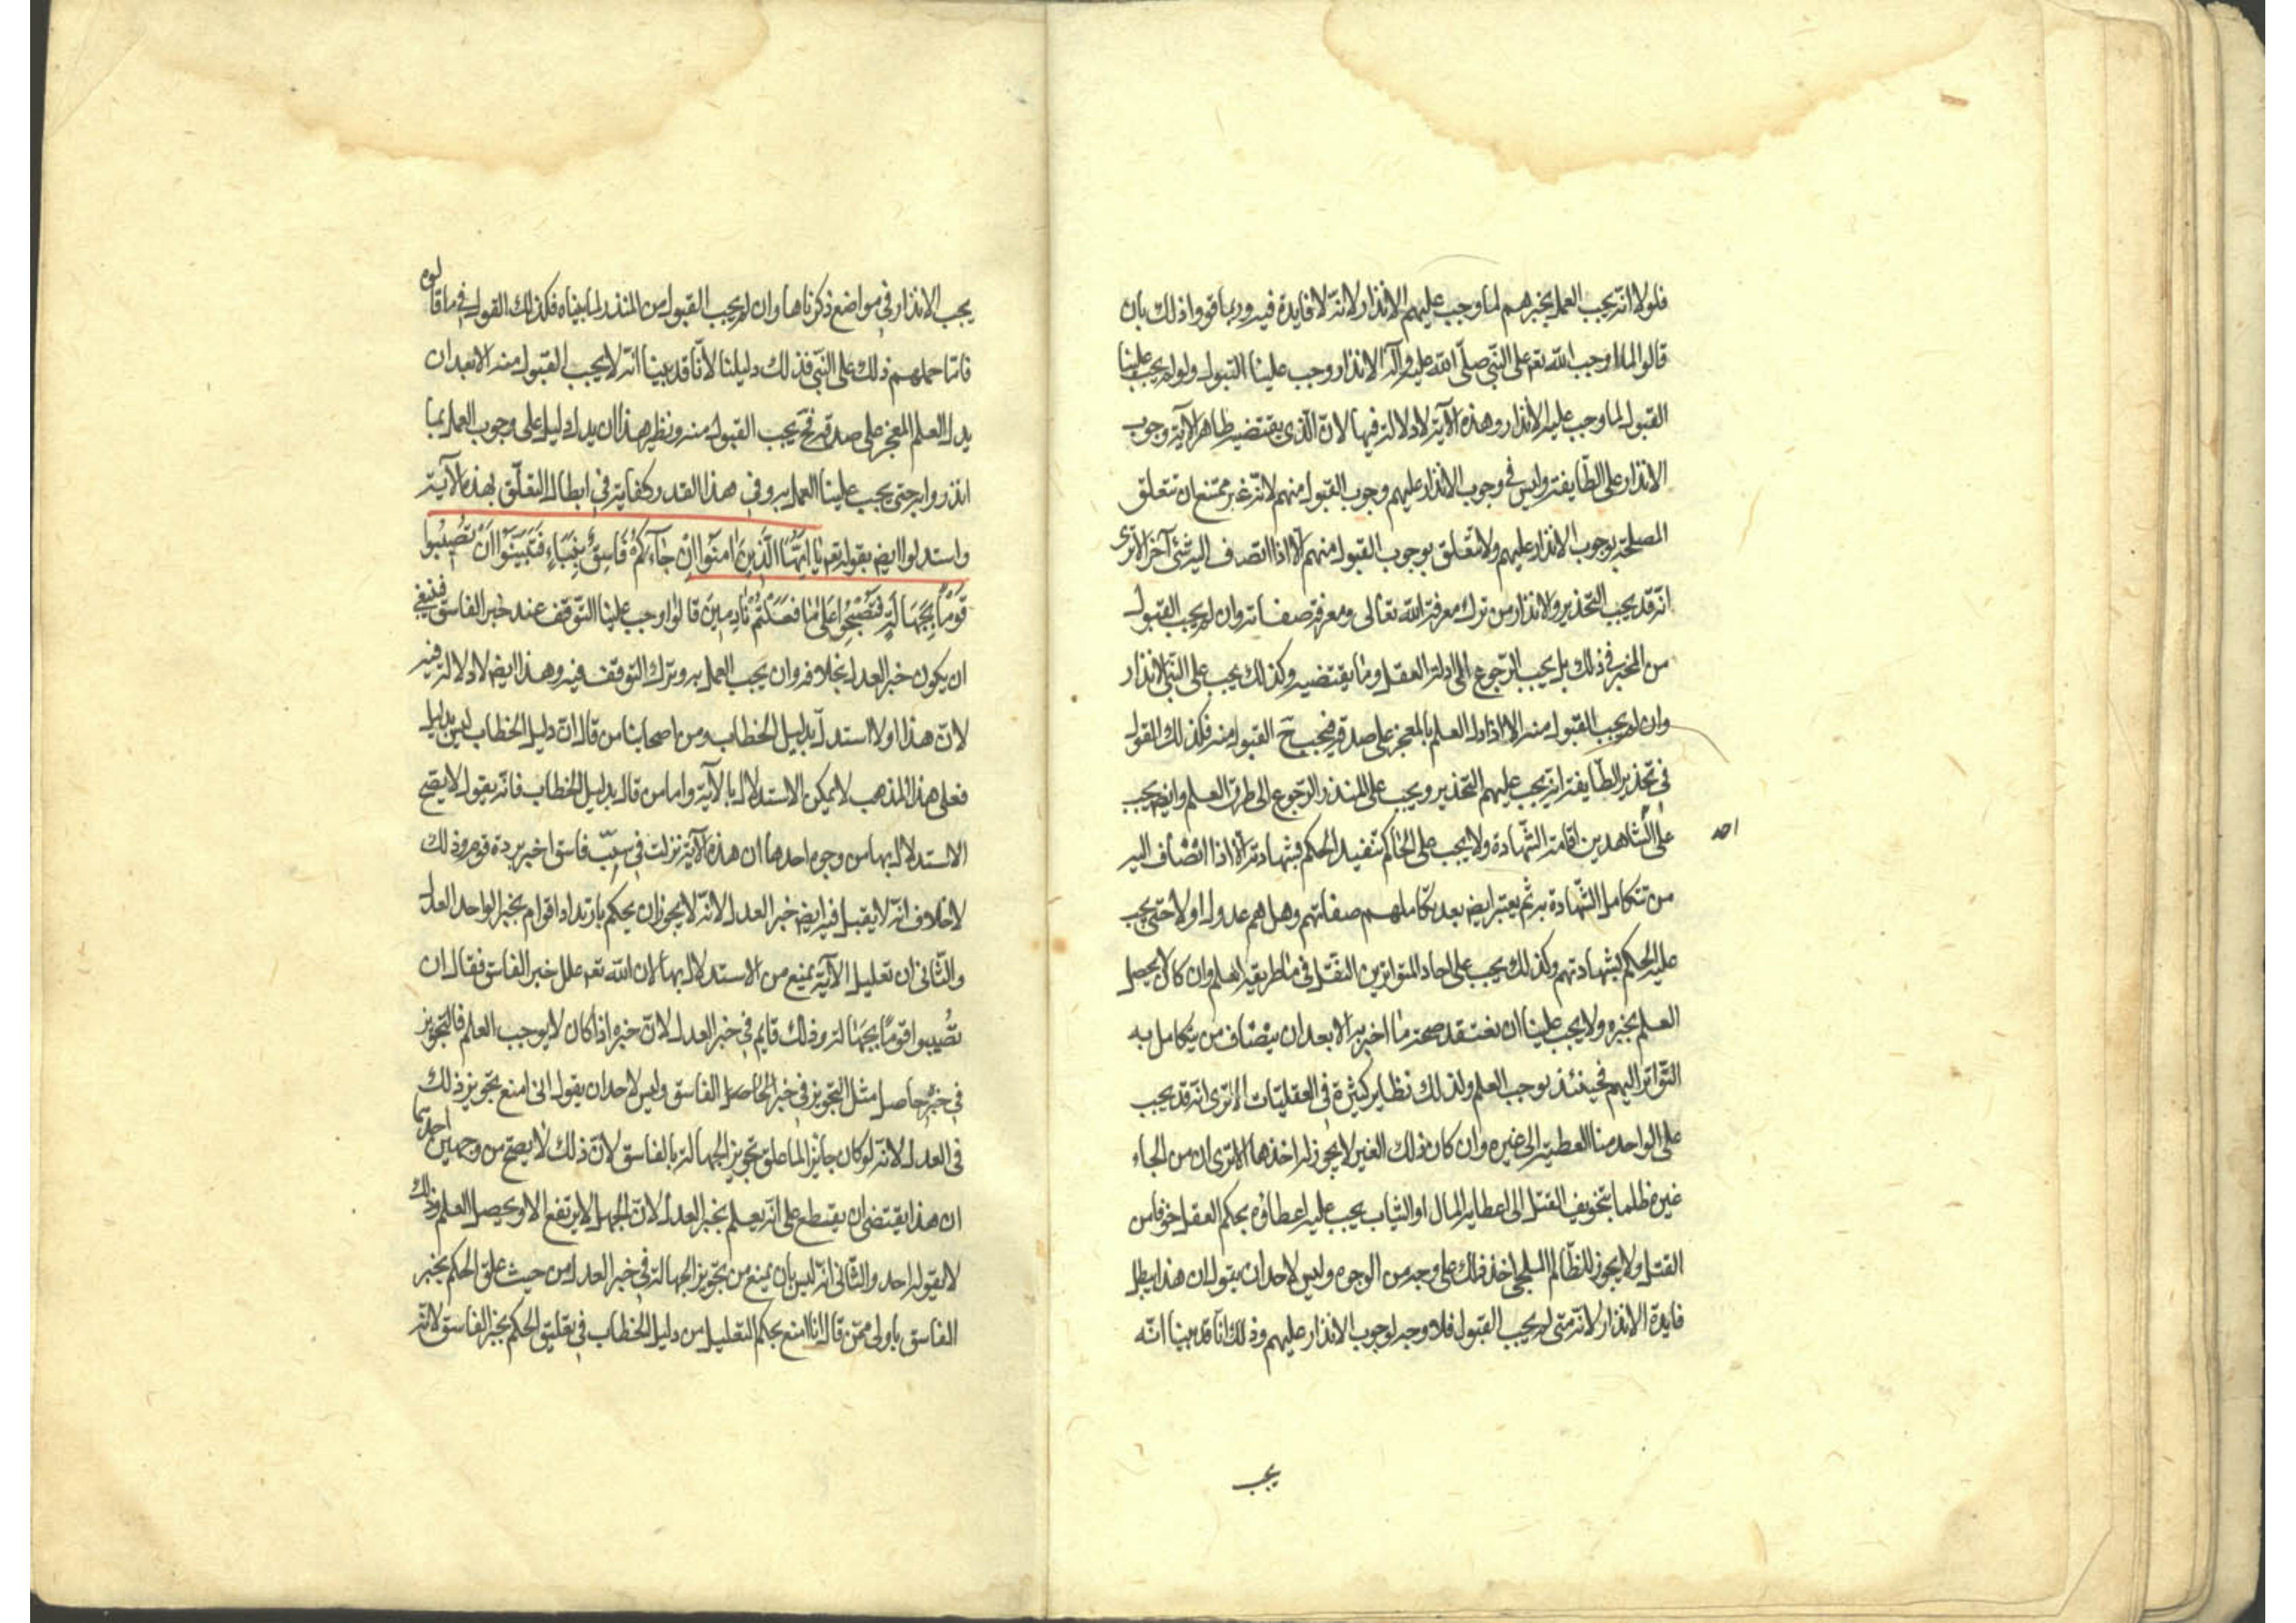 فلولا انّه يجب العمل بخبرهم لما وجب عليهم الانذار لانّه لا فايدة فيه وربما قووا ذلك بان
قالوا لما اوجب الله تعم على النّبي صلّى الله عليه وآله الانذار وجب علينا القبول ولو لم يجب علينا
القبول لما وجب عليه الانذار وهذه الآية لا دلالة فيها لانّ الّذي يقتضيه ظاهر الآية وجوب
الانذار على الطّايفة وليس في وجوب الانذار عليهم وجوب القبول منهم لانّه غير ممتنع ان تتعلق
المصلحة بوجوب الانذار عليهم ولا تتعلق بوجوب القبول منهم الّا اذا انضاف اليه شئ آخر الا ترى
انّه قد يجب التحذير والانذار من ترك معرفة الله تعالى ومعرفة صفاته وان لم يجب القبول
من المخبر في ذلك بل يجب الرّجوع الى ادلة العقل وما يقتضيه وكذلك يجب على النّبي الانذار
وان لم يجب القبول منه الا اذا دل العلم المعجز على صدقه فيجب ح القبول منه فكذلك القول
في تحذير الطّايفة انّه يجب عليهم التحذير ويجب على المنذر الرّجوع الى طرق العلم وايض يجب
على الشّاهدين اقامة الشّهادة ولا يجب على الحاكم تنفيذ الحكم بشهادته الّا اذا انضاف اليه
احد
من تتكامل الشّهادة به ثم يعتبر ايض بعد تكاملهم صفاتهم وهل هم عدول او لا حتى يجب
عليه الحكم بشهادتهم وكذلك يجب على احاد المتواترين النّقل في ما طريقه العلم وان كان لا يحصل
العلم بخبره ولا يجب علينا ان نعتقد صحة ما اخبر به الا بعد ان ينضاف من يتكامل به
التّواتر اليهم فحينئذ يوجب العلم ولذلك نظاير كثيرة في العقليّات الا ترى انّه قد يجب
على الواحد منا العطية الى غيره وان كان ذلك الغير لا يجوز له اخذها الا ترى ان من الجاء
غيره ظلما بتخويف القتل الى اعطايه المال او الثياب يجب عليه اعطاؤه بحكم العقل خوفا من
القتل ولا يجوز للظّالم الملجي اخذ ذلك على وجه من الوجوه وليس لاحد ان يقول ان هذا يبطل
فايدة الانذار لانّه متى لم يجب القبول فلا وجه لوجوب الانذار عليهم وذلك انّا قد بينا انّه
يجب
يجب الانذار في مواضع ذكرناها وان لم يجب القبول من المنذر لما بيناه فكذلك القول في ما قالوه
فامّا حملهم ذلك على النّبي فذلك دليلنا لانّا قد بينا انّه لا يجب القبول منه الا بعد ان
يدل العلم المعجز على صدقه فح يجب القبول منه ونظير هذا ان يدل دليل على وجوب العمل بما
انذروا به حتى يجب علينا العمل به وفي هذا القدر كفاية في ابطال التعلّق بهذه الآية
واستدلوا ايض بقوله تعم يا ايّها الّذين امنوا ان جاءكم فاسق بنباء فتبيّنوا ان تصيبوا
قوما بجهالة فتصبحوا على ما فعلتم نادمين قالوا اوجب علينا التّوقف عند خبر الفاسق فينبغي
ان يكون خبر العدل بخلافه وان يجب العمل به وترك التّوقف فيه وهذا ايض لا دلالة فيه
لانّ هذا اولا استدلّ بدليل الخطاب ومن اصحابنا من قال ان دليل الخطاب ليس بدليل
فعلى هذا المذهب لا يمكن الاستدلال بالآية واما من قال بدليل الخطاب فانّه يقول لا يصح
الاستدلال بها من وجوه احدها ان هذه الآية نزلت في سبب فاسق اخبر بردة قوم وذلك
لا خلاف انّه لا يقبل فيه ايض خبر العدل لانّه لا يجوز ان يحكم بارتداد اقوام بخبر الواحد العدل
والثّاني ان تعليل الآية يمنع من الاستدلال بها لان الله تعم علل خبر الفاسق فقال ان
تصيبوا قوما بجهالة وذلك قايم في خبر العدل لانّ خبره اذا كان لا يوجب العلم فالتّجويز
في خبره حاصل مثل التجويز في خبر الحاصل الفاسق وليس لاحد ان يقول انى امنع تجويز ذلك
في العدل لانّه لو كان جايزا لما علق تجويز الجهالة بالفاسق لانّ ذلك لا يصح من وجهين احدهما
ان هذا يقتضي ان يقطع على انّه يعلم بخبر العدل لانّ الجهل لا يرتفع الا ويحصل العلم وذلك
لا يقوله احد والثّاني انّه ليس بان يمنع من تجويز الجهالة في خبر العدل من حيث علق الحكم بخبر
الفاسق باولى ممّن قال انا امنع بحكم التعليل من دليل الخطاب في تعليق الحكم بخبر الفاسق لانّه